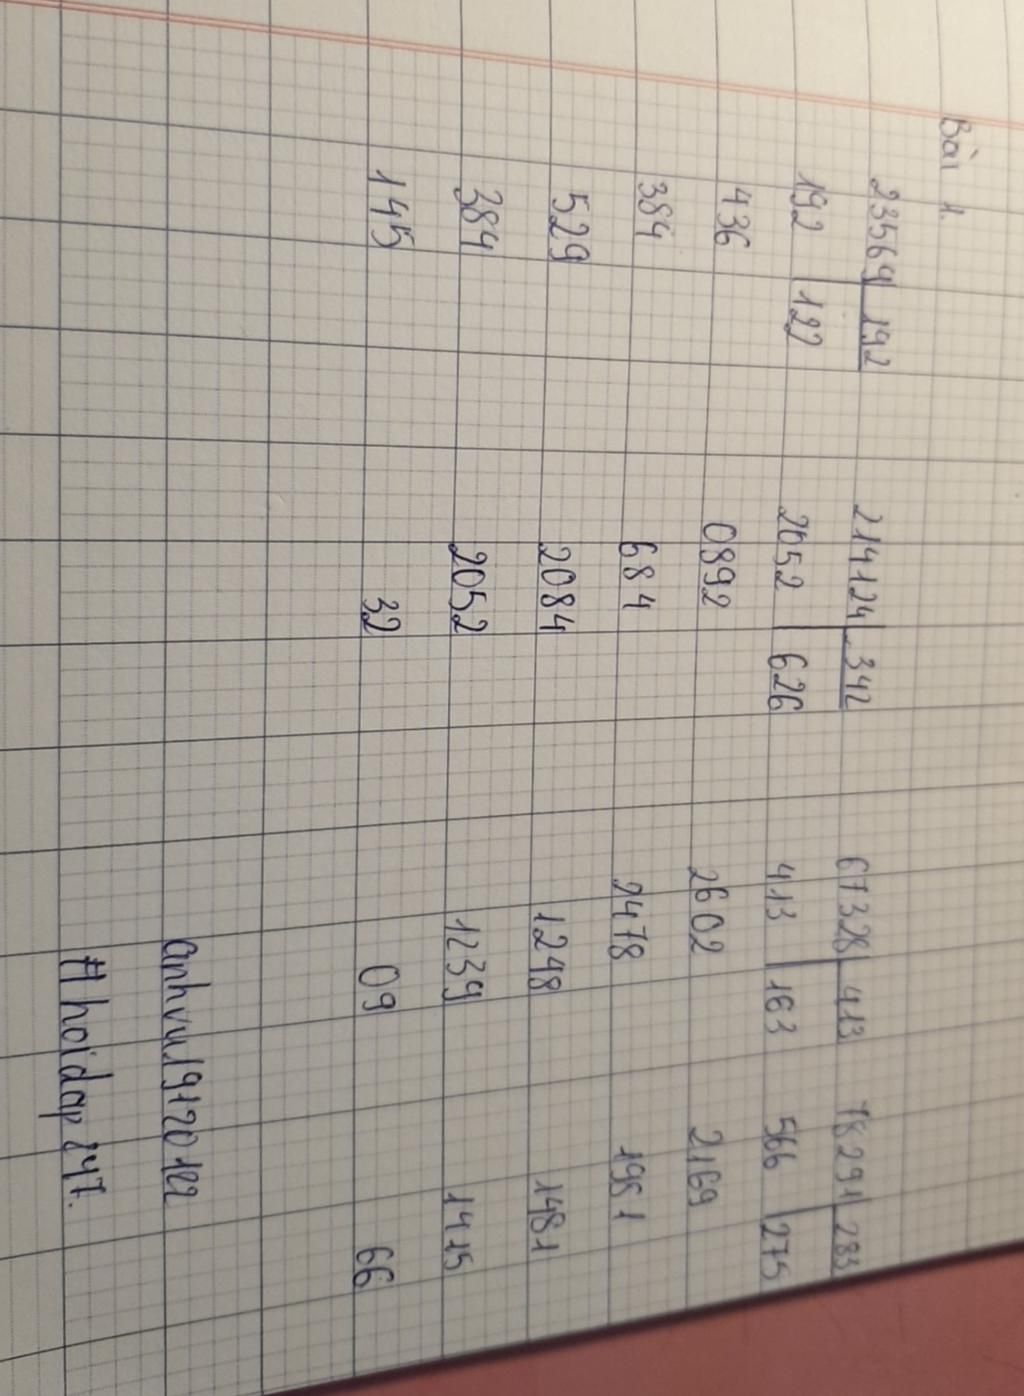 Bài 1.
23569 192 214124 342 67328 413 78291 283
192 122 2052 626 413 163 566 275
436 0892 2602 2169
384 684 2478 1981
529 2084 1248 1481
384 2052 1239 1415
145 32 09 66
anhvu19120122
#hoidap247.